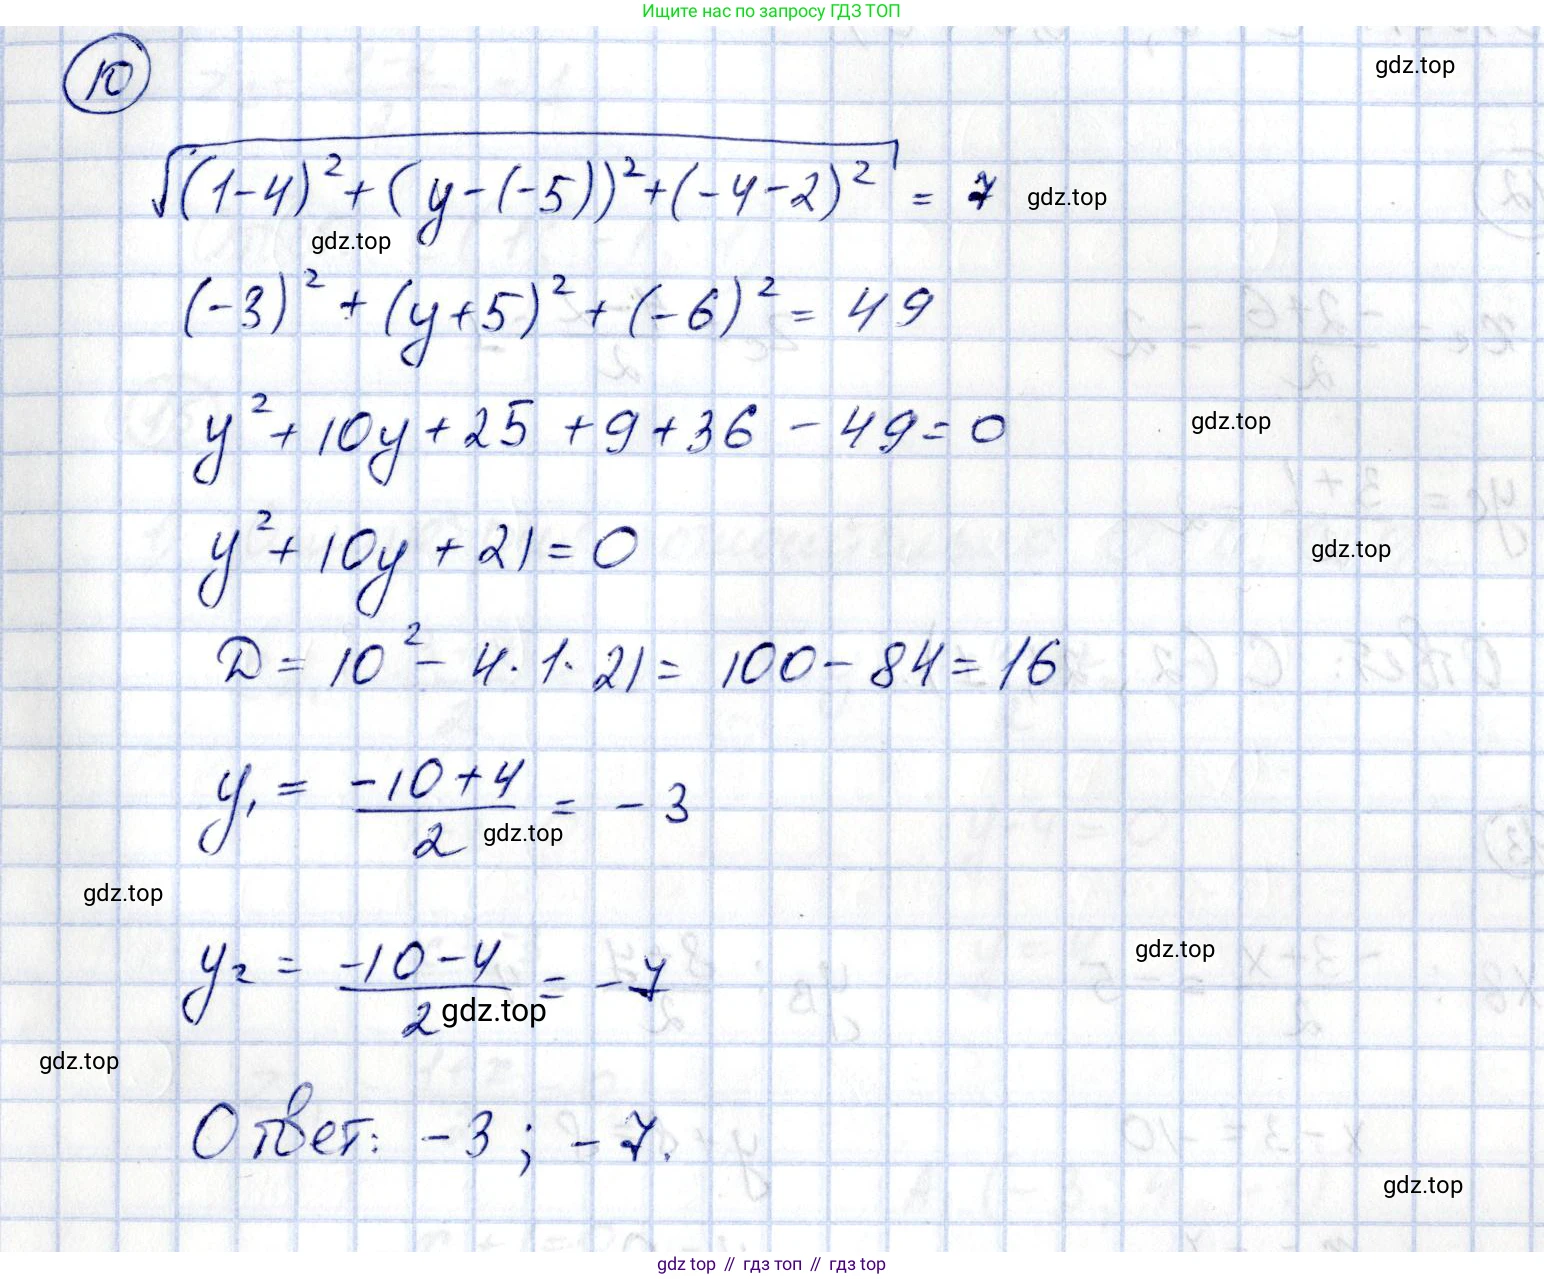 Ищите нас по запросу ГДЗ ТОП
10
gdz.top
√((1-4)²+(y-(-5))²+(-4-2)²) = 7
gdz.top
gdz.top
(-3)² + (y+5)² + (-6)² = 49
y² + 10y + 25 + 9 + 36 - 49 = 0
gdz.top
y² + 10y + 21 = 0
gdz.top
D = 10² - 4·1·21 = 100 - 84 = 16
y₁ = (-10+4)/2 = -3
gdz.top
gdz.top
y₂ = (-10-4)/2 = -7
gdz.top
gdz.top
gdz.top
Ответ: -3; -7.
gdz.top
gdz top // гдз топ // gdz top